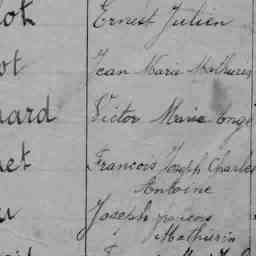 ot Ernest Julien
ot Jean Marie Mathurin
ard Victor Marie Ange
et Francois Joseph Charles
Antoine
Joseph francois
Mathurin